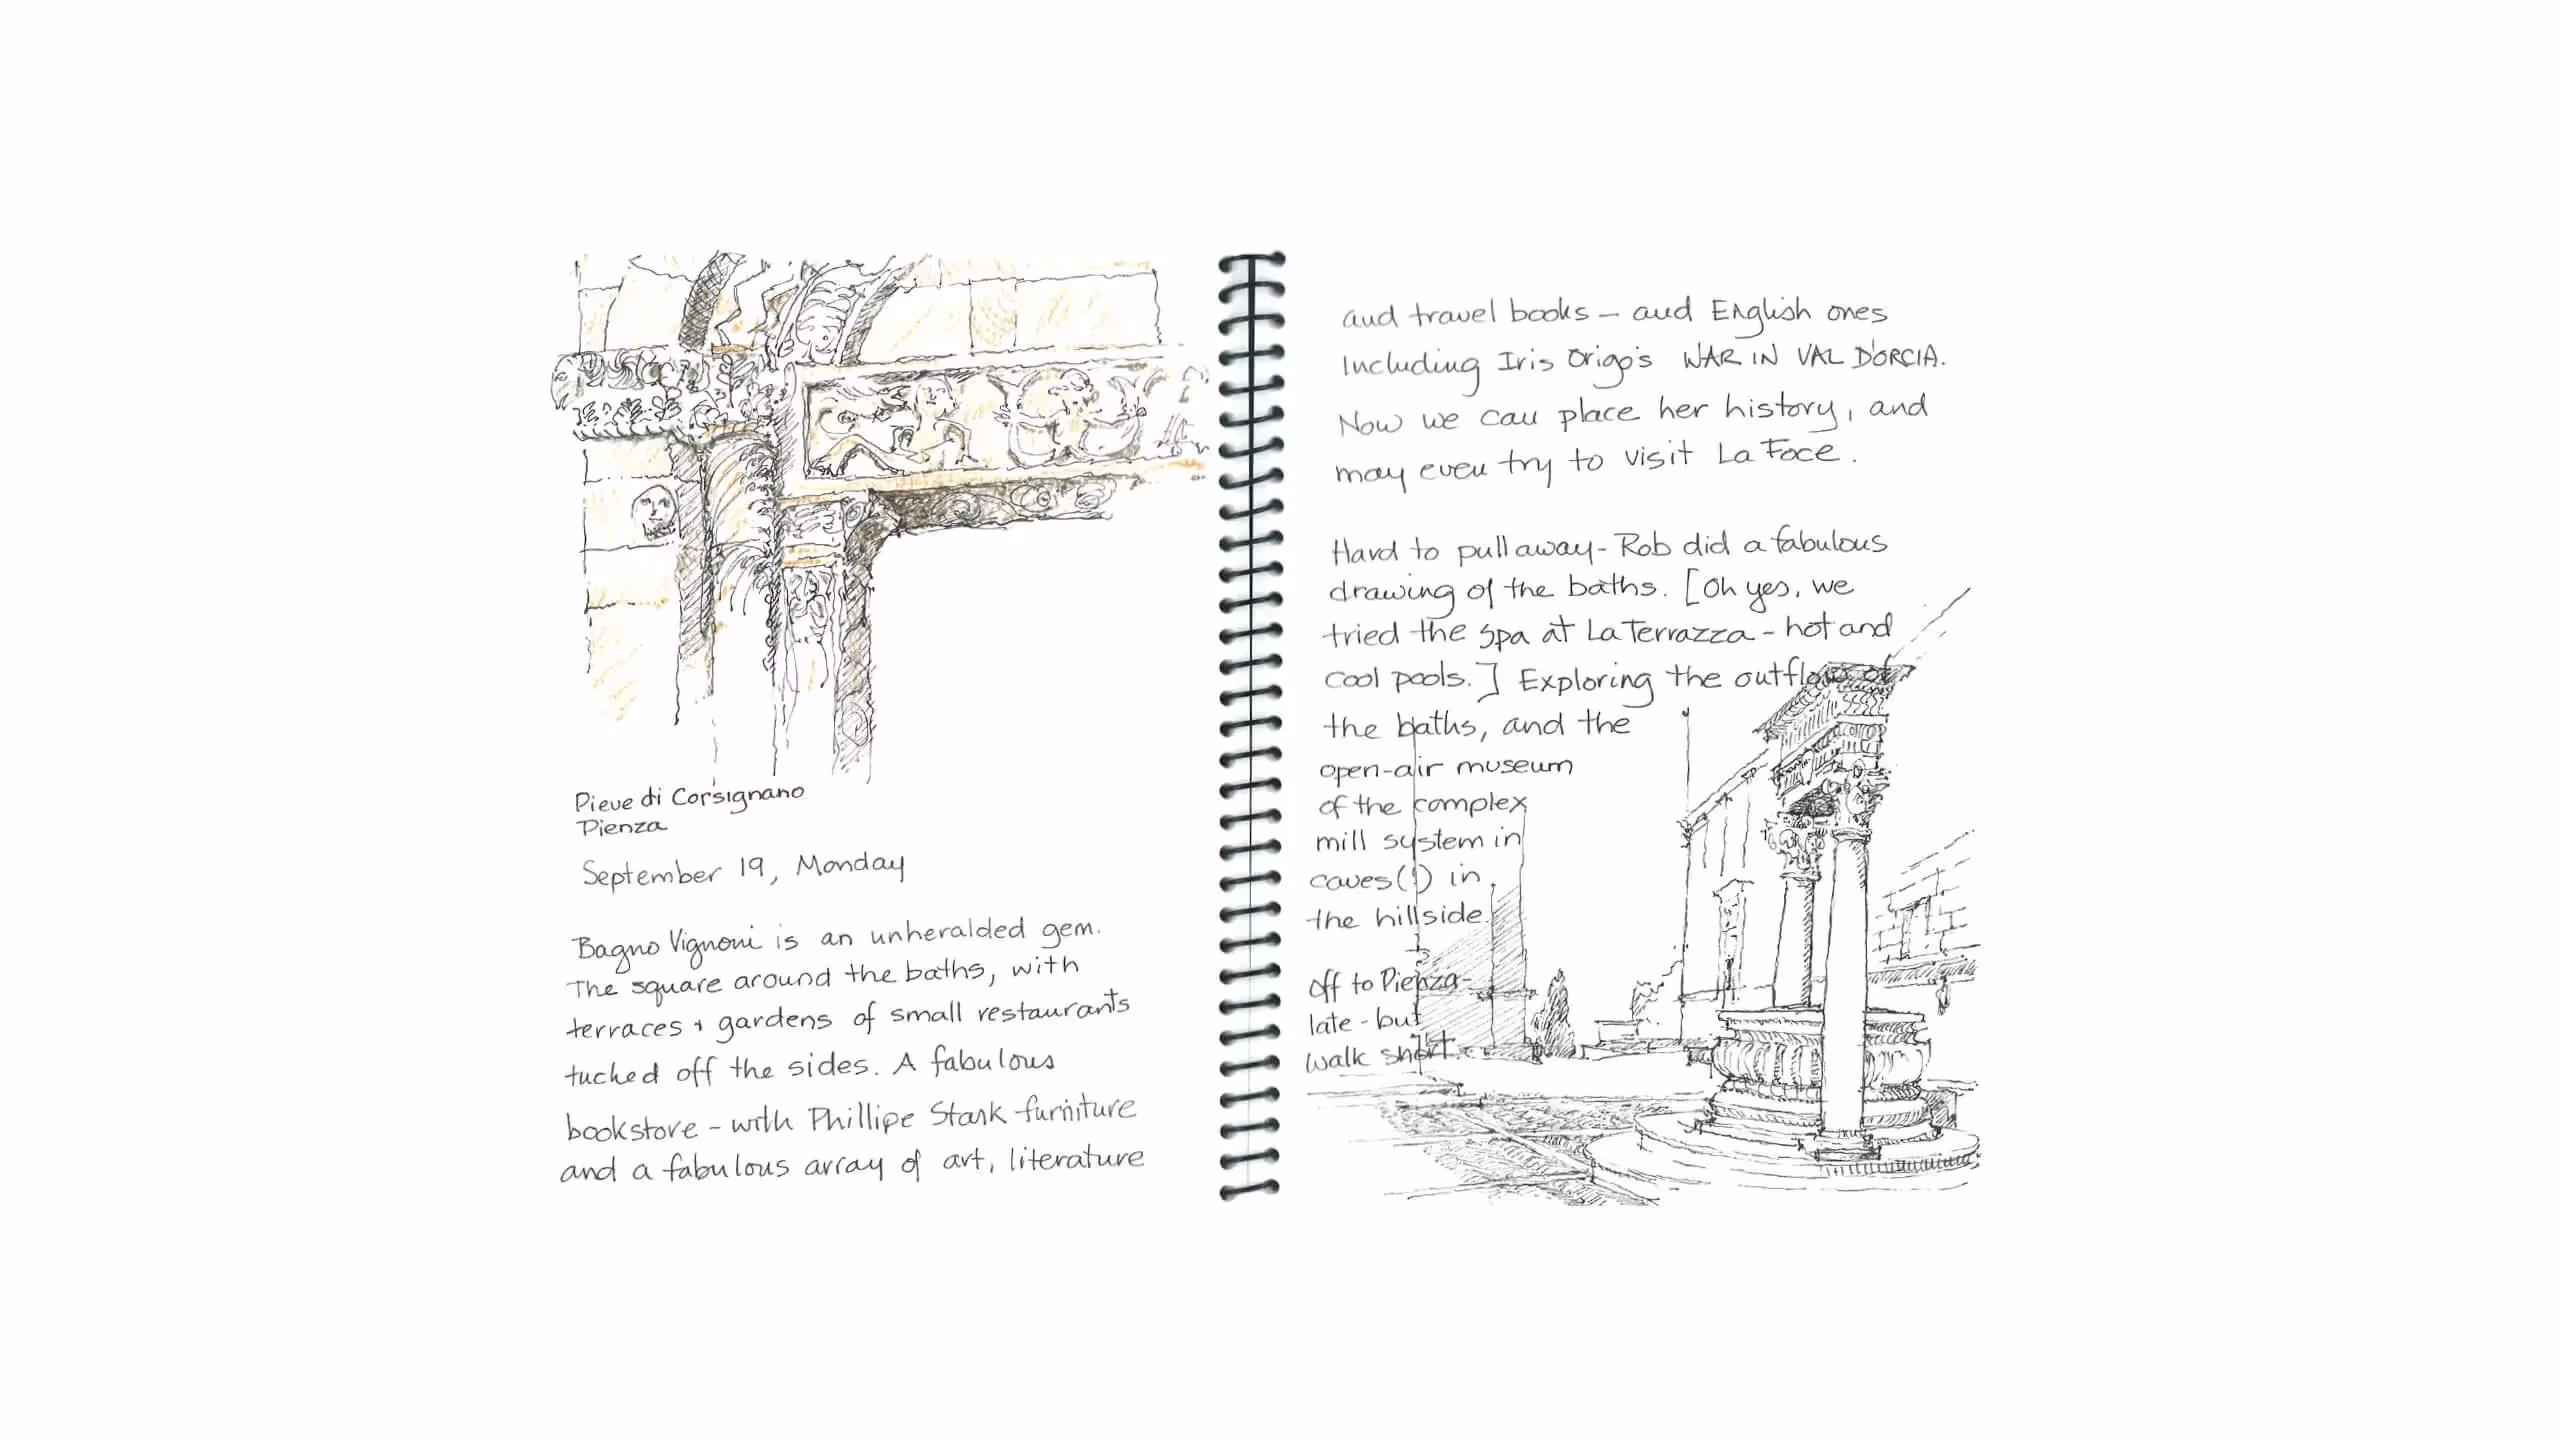 Pieve di Corsignano
Pienza
September 19, Monday
Bagno Vignoni is an unheralded gem.
The square around the baths, with
terraces + gardens of small restaurants
tucked off the sides. A fabulous
bookstore - with Phillipe Stark furniture
and a fabulous array of art, literature
and travel books - and English ones
Including Iris Origo's WAR IN VAL D'ORCIA.
Now we can place her history, and
may even try to visit La Foce.
Hard to pull away - Rob did a fabulous
drawing of the baths. [Oh yes, we
tried the spa at La Terrazza - hot and
cool pools.] Exploring the outflow of
the baths, and the
open-air museum
of the complex
mill system in
caves(!) in
the hillside.
Off to Pienza -
late - but
walk short.